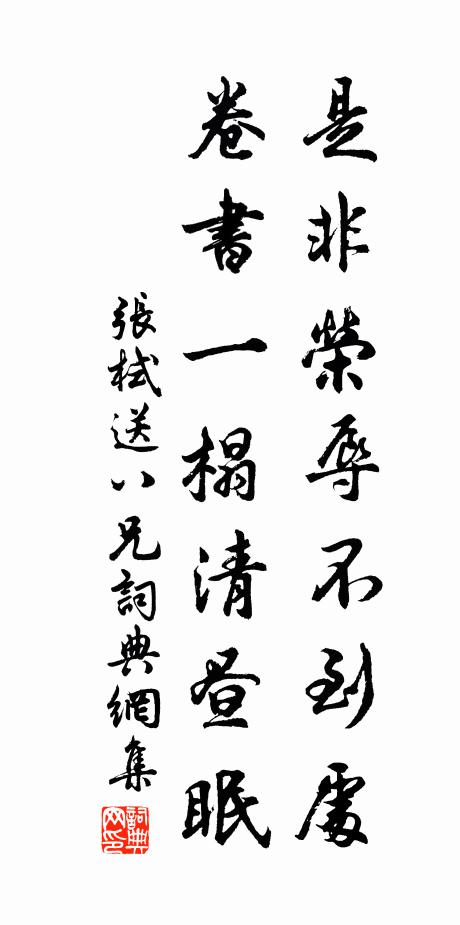 是非榮辱不到處
卷書一榻清昼眠
張栻送八兄詞典網集
詞典网印